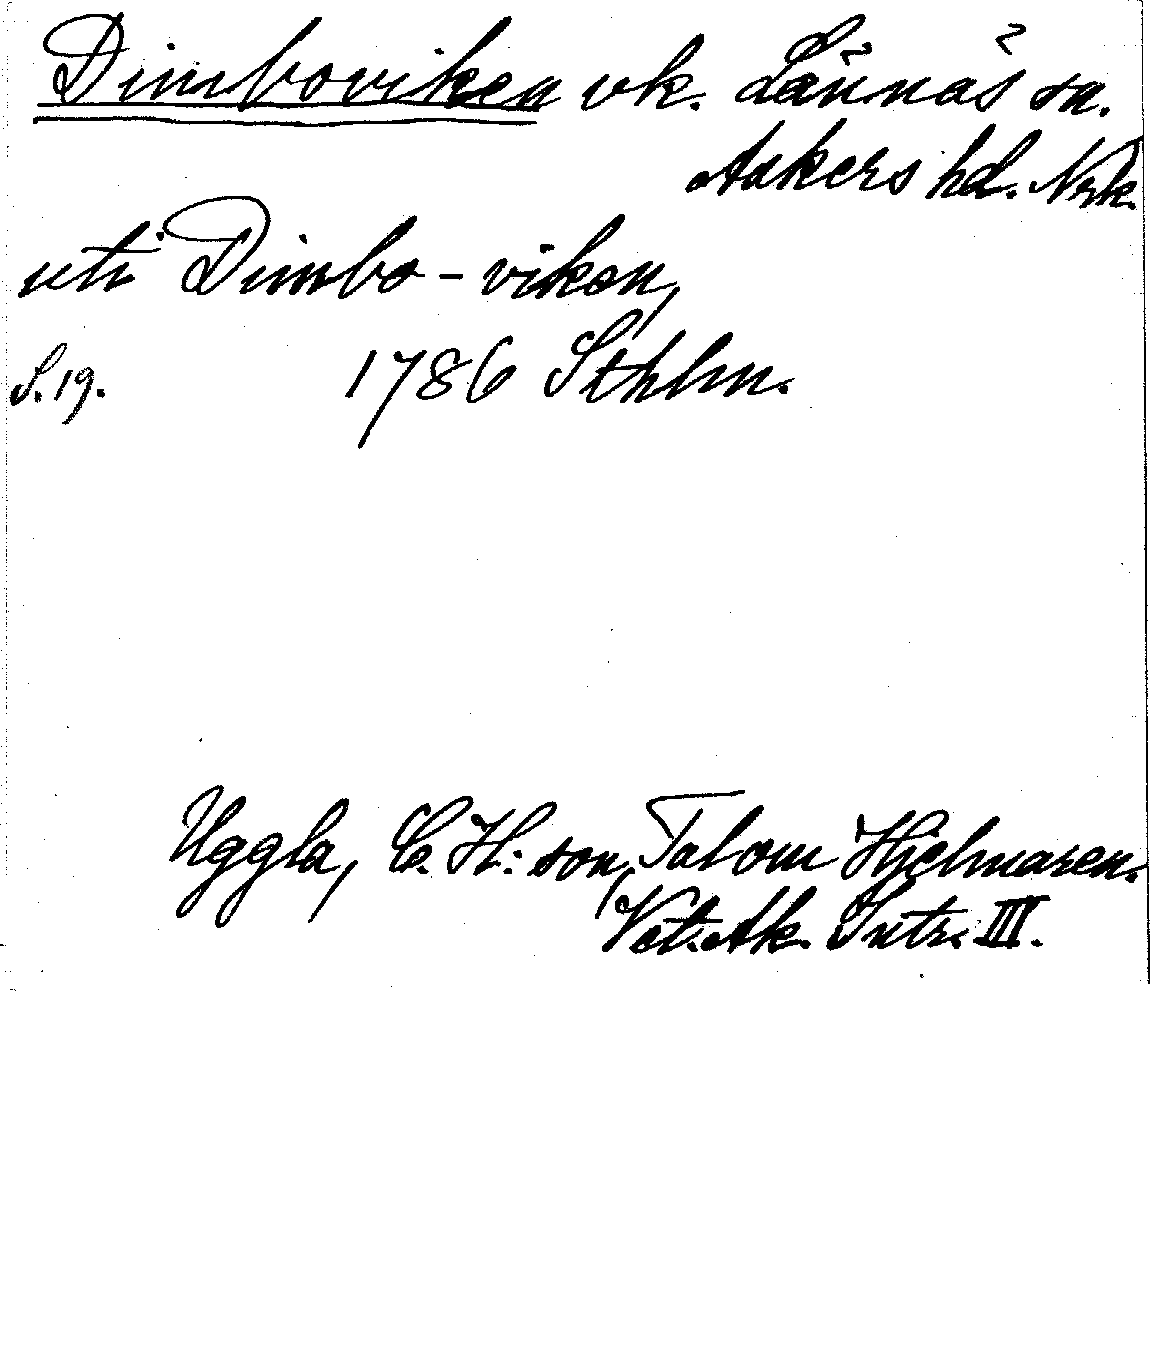 Dimboviken vk. Lännäs sn.
Askers hd. Nrk.
uti Dimbo-viken,
S. 19. 1786 Sthlm.
Uggla, C. H:son, Tal om Hjelmaren.
Vet. Ak. Intr. III.